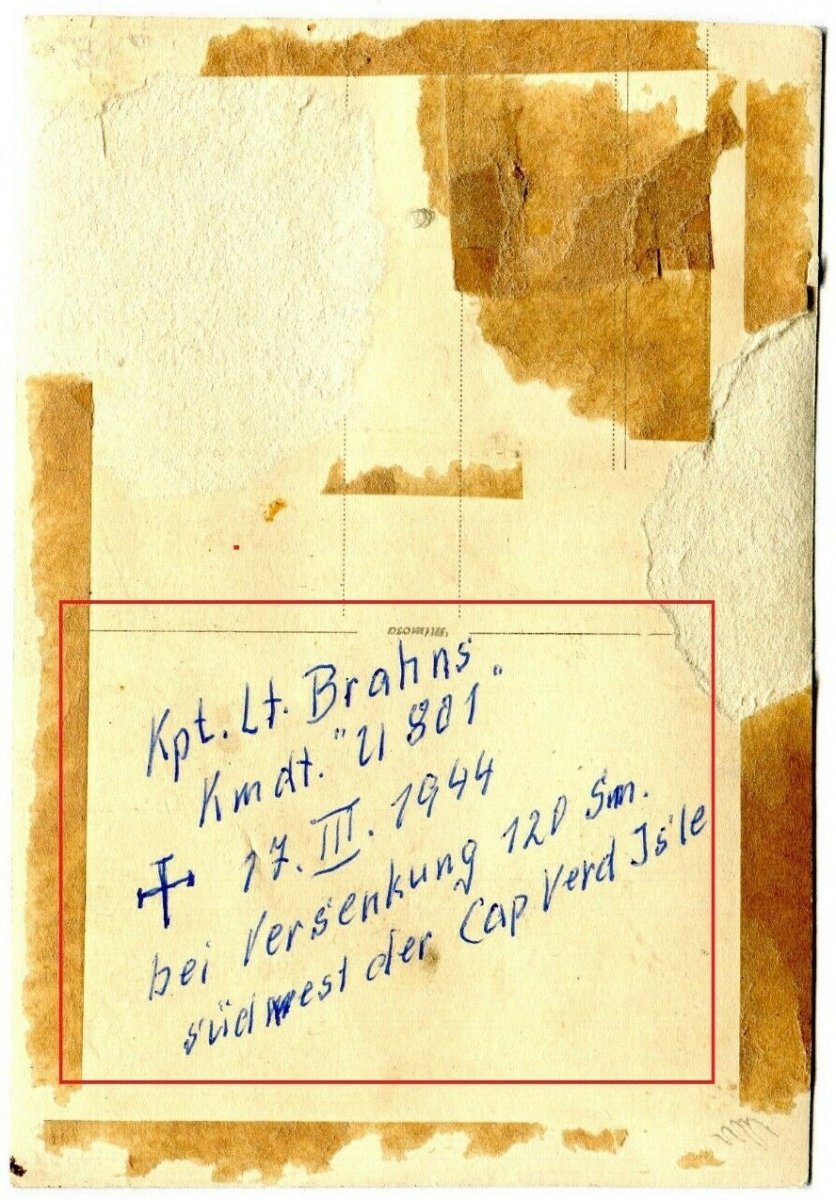 Kpt. Lt. Brahns
Kmdt. "U 801"
† 17. III. 1944
bei Versenkung 120 Sm.
südwest der Cap Verd Isle